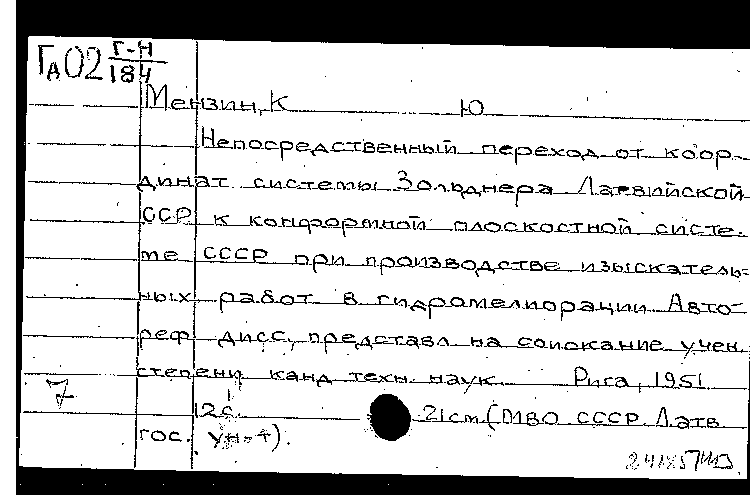 Га02 Г-Н
184
Мензин, К Ю
Непосредственный переход от коор-
динат системы Зольднера Латвийской
ССР к конформной плоскостной систе-
ме СССР при производстве изыскатель-
ных работ в гидромелиорации Авто-
реф дисс, представл на соискание учен
степени канд техн. наук. Рига, 1951
7
12с. 21см (МВО СССР Латв
гос. ун-т).